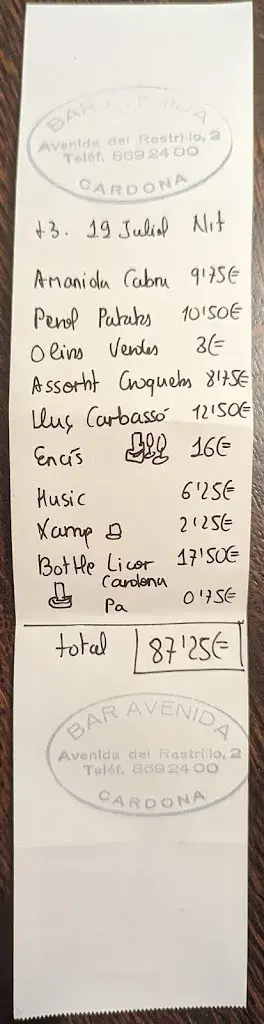 BAR AVENIDA
Avenida del Rastrillo, 2
Teléf. 869 24 00
CARDONA
t3. 19 Juliol Nit
Amanida Cabra 9'75€
Perol Patates 10'50€
Olives Verdes 3€
Assortit Croquetes 8'75€
Lluç Carbassó 12'50€
Encís 16€
Music 6'25€
Xamp 2'25€
Bottle Licor 17'50€
Cardona
Pa 0'75€
total 87'25€
BAR AVENIDA
Avenida del Rastrillo, 2
Teléf. 869 24 00
CARDONA